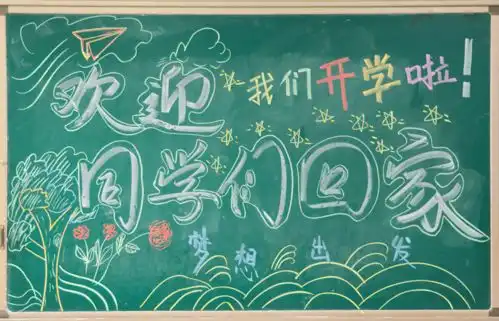 欢迎
我们开学啦！
同学们回家
梦想出发